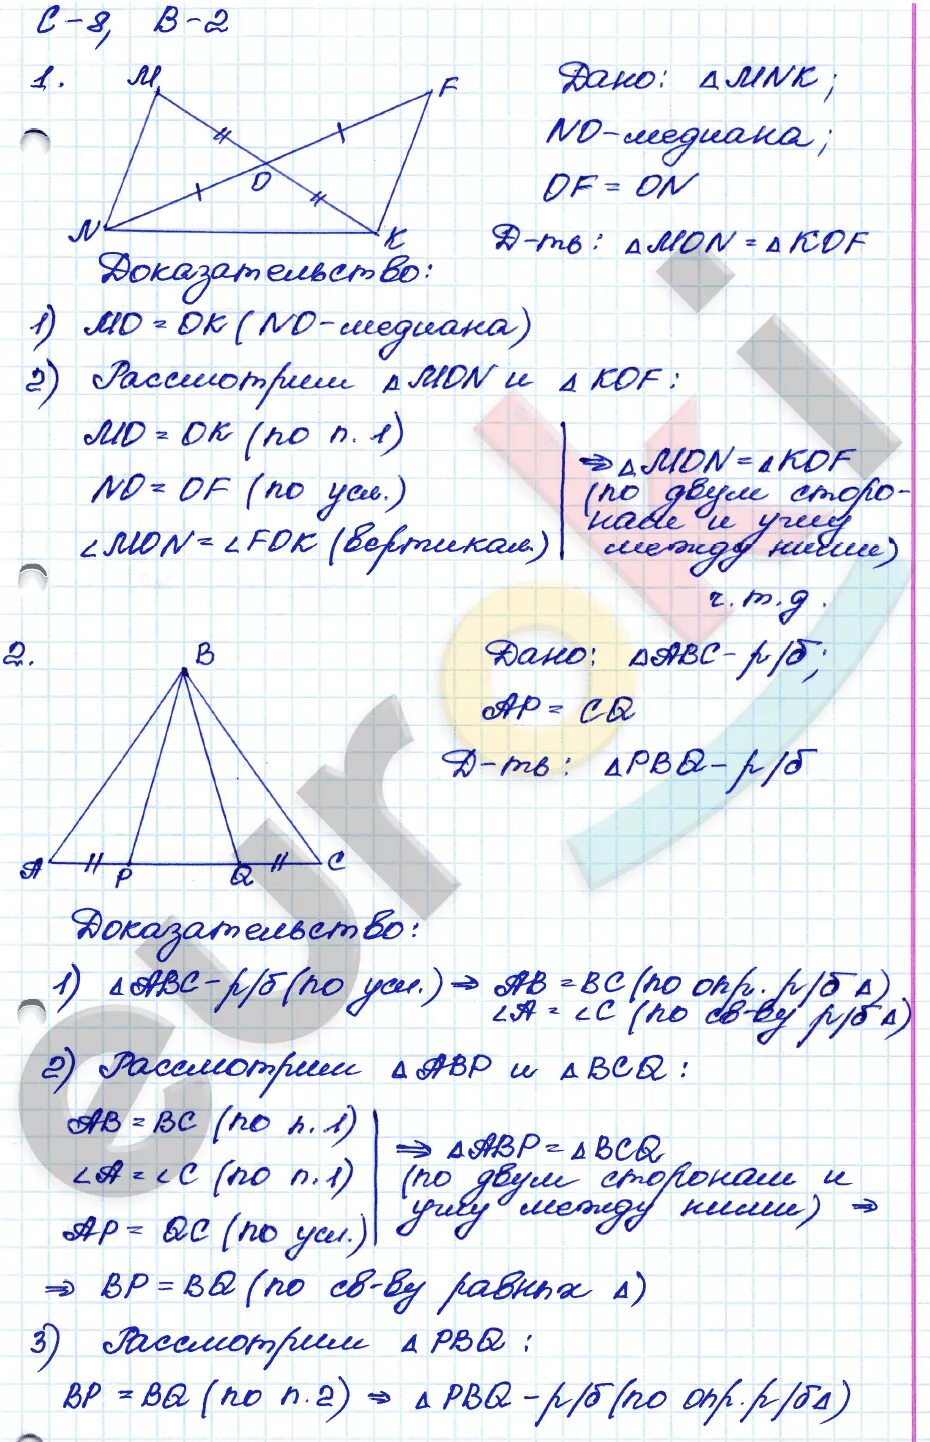 С-8, В-2
1.
M
F
O
N
K
Дано: △MNK;
NO-медиана;
OF = ON
Д-ть: △MON = △KOF
Доказательство:
1) MO = OK (NO-медиана)
2) Рассмотрим △MON и △KOF:
MO = OK (по п. 1)
NO = OF (по усл.)
∠MON = ∠FOK (вертикал.)
⇒ △MON = △KOF
(по двум сторо-
нам и углу
между ними)
ч.т.д.
2.
B
A
P
Q
C
Дано: △ABC - р/б;
AP = CQ
Д-ть: △PBQ - р/б
Доказательство:
1) △ABC - р/б (по усл.) ⇒ AB = BC (по опр. р/б △)
∠A = ∠C (по св-ву р/б △)
2) Рассмотрим △ABP и △BCQ:
AB = BC (по п. 1)
∠A = ∠C (по п. 1)
AP = QC (по усл.)
⇒ △ABP = △BCQ
(по двум сторонам и
углу между ними) ⇒
⇒ BP = BQ (по св-ву равных △)
3) Рассмотрим △PBQ:
BP = BQ (по п. 2) ⇒ △PBQ - р/б (по опр. р/б △)
euroki